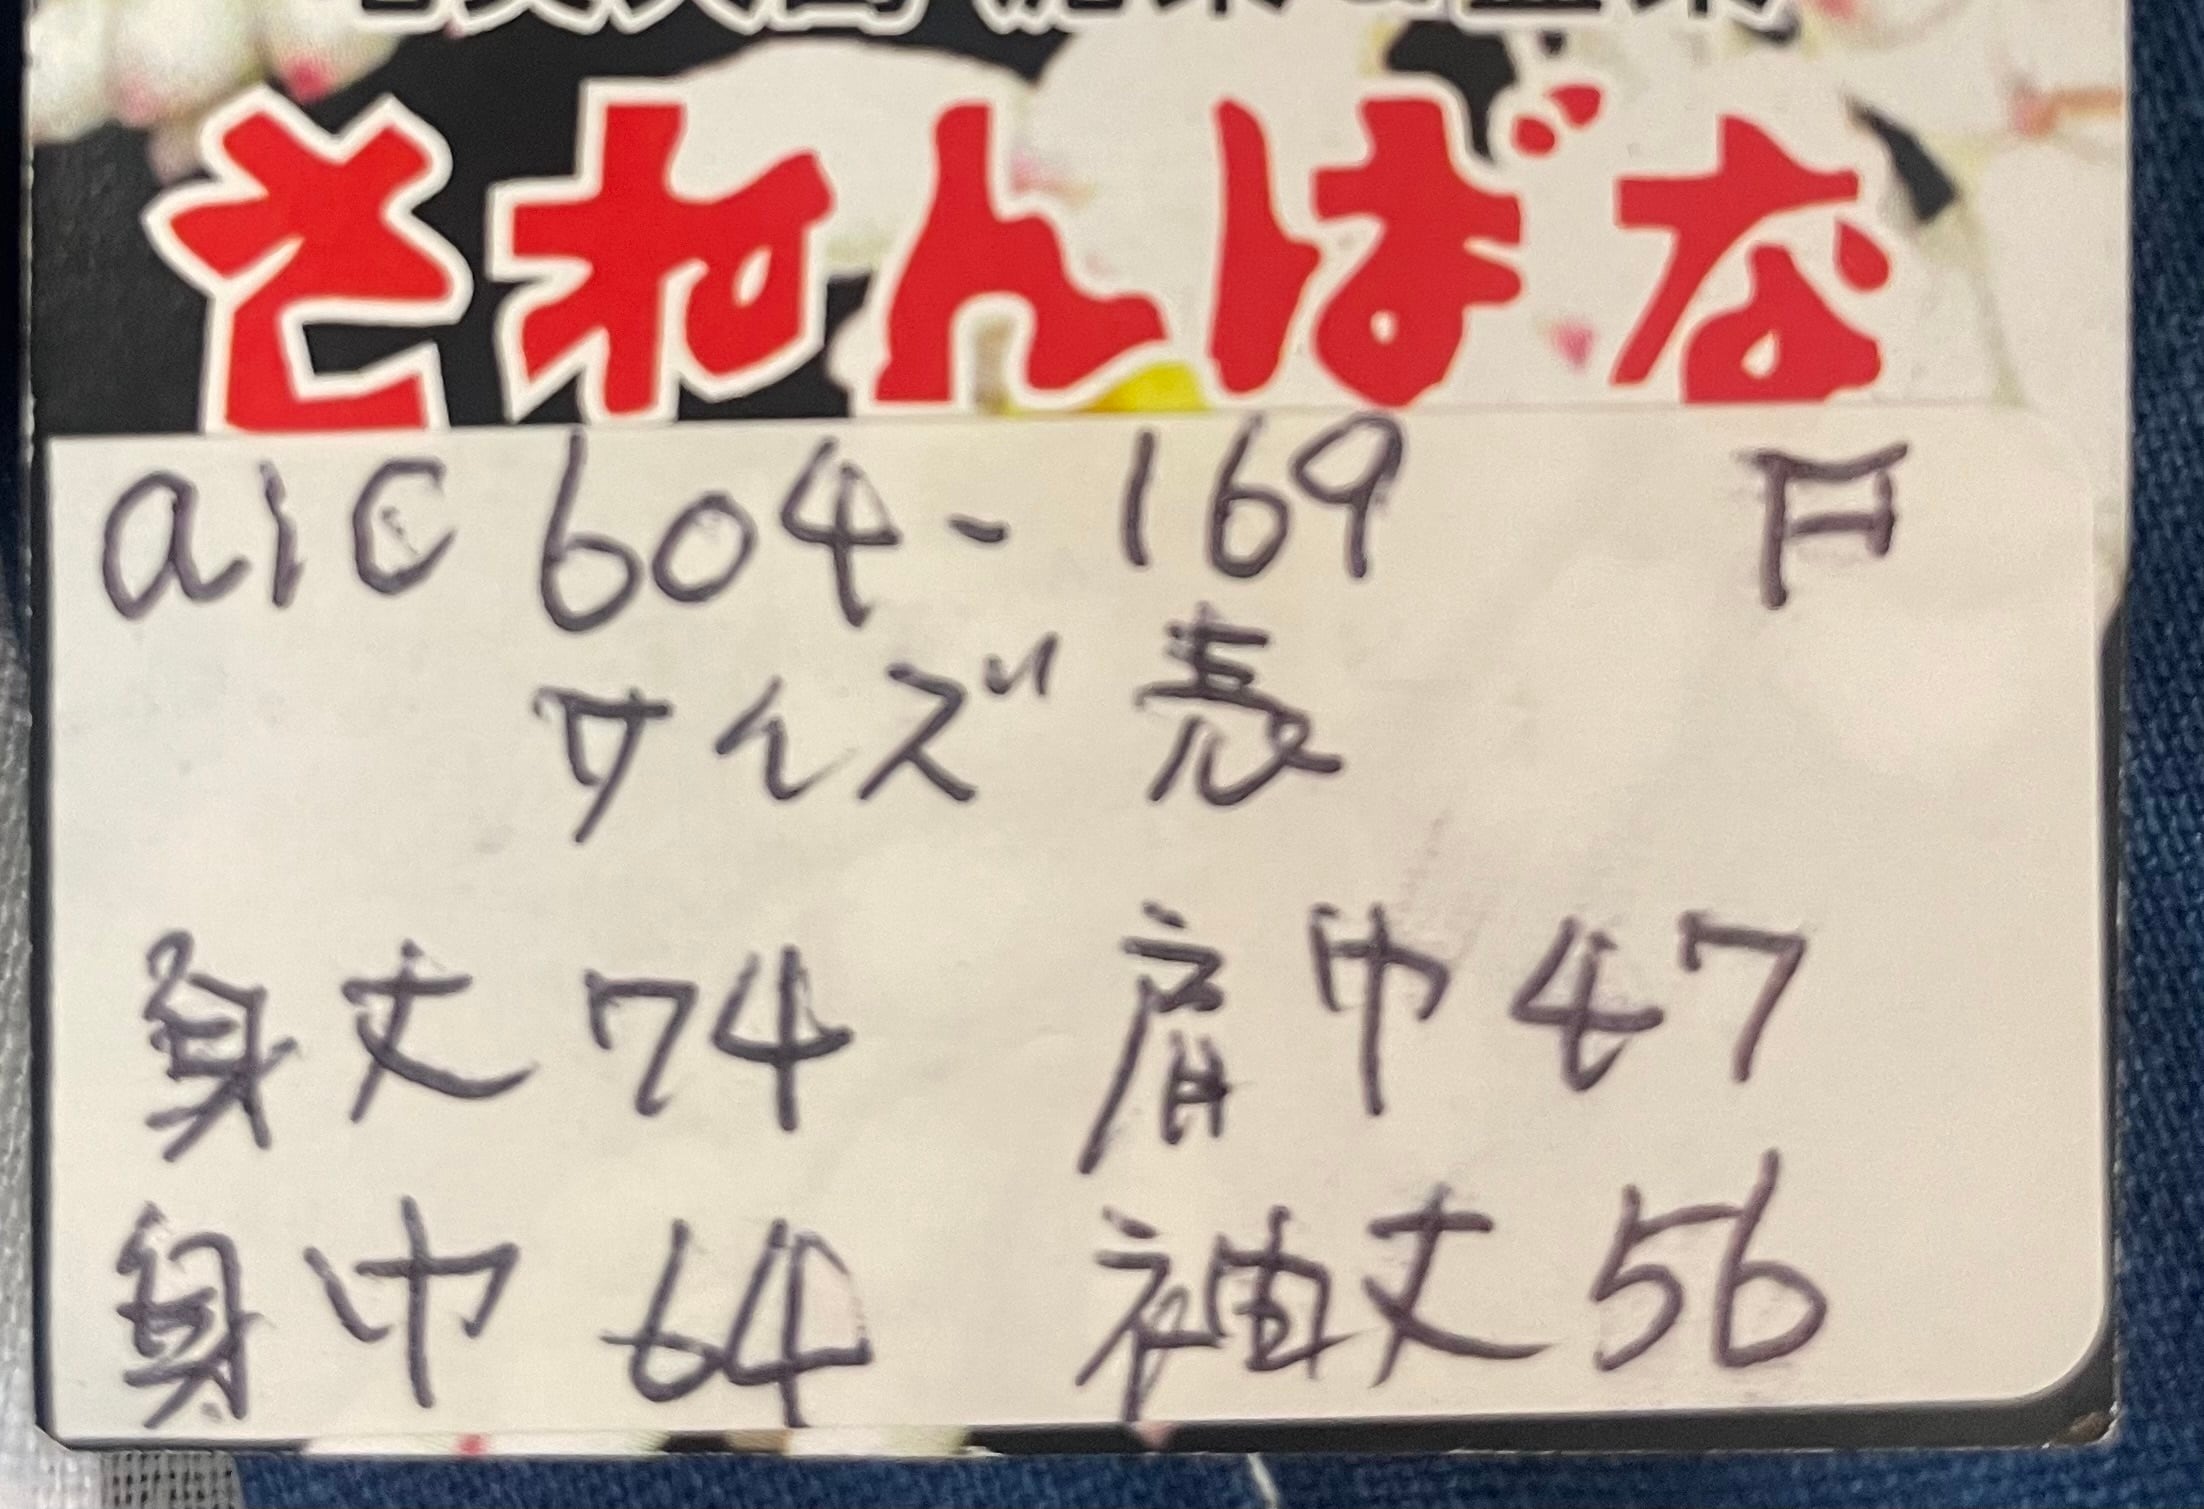 さねんばな
aic 604-169 戸
サイズ表
身丈 74 肩巾 47
身巾 64 袖丈 56